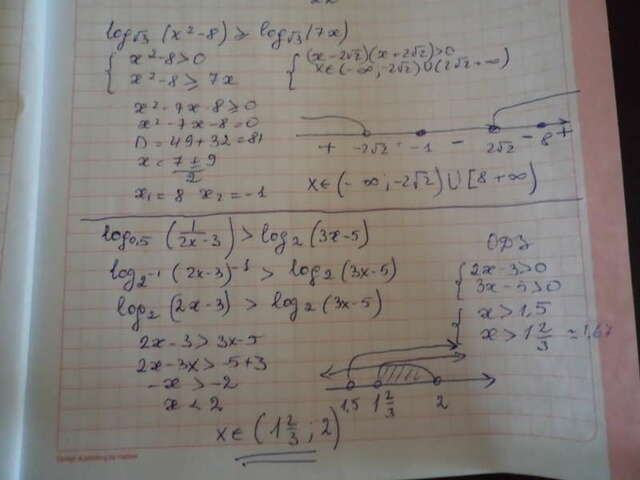 log√3 (x²-8) ≥ log√3 (7x)
{ x²-8>0
x²-8 ≥ 7x
{ (x-2√2)(x+2√2)>0
x∈(-∞;-2√2)∪(2√2;+∞)
x²-7x-8≥0
x²-7x-8=0
D=49+32=81
x=(7±9)/2
x₁=8 x₂=-1
+ -2√2 - -1 - 2√2 - 8 +
x∈(-∞;-2√2)∪[8+∞)
log₀,₅ (1/(2x-3)) > log₂ (3x-5)
log₂⁻¹ (2x-3)⁻¹ > log₂ (3x-5)
log₂ (2x-3) > log₂ (3x-5)
ОДЗ
{ 2x-3>0
3x-5>0
{ x>1,5
x>1 2/3 ≈1,67
2x-3>3x-5
2x-3x>-5+3
-x>-2
x<2
1,5 1 2/3 2
x∈(1 2/3; 2)